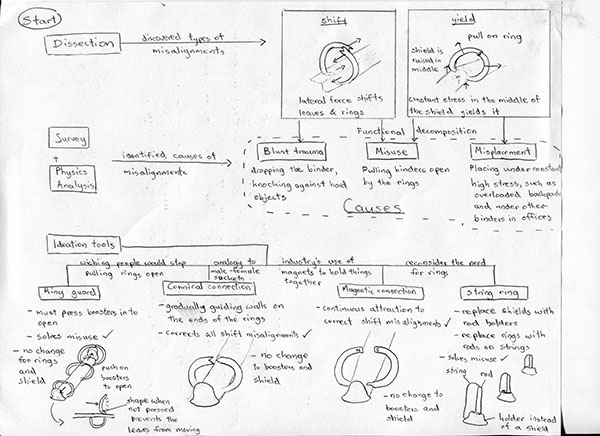 Start
Dissection
discovered types of
misalignments
shift
lateral force shifts
leaves & rings
yield
pull on ring
shield is
raised in
middle
constant stress in the middle of
the shield yields it
Survey
+
Physics
Analysis
identified causes of
misalignments
Functional decomposition
Blunt trauma
dropping the binder,
knocking against hard
objects
Misuse
Pulling binders open
by the rings
Misplacement
Placing under constant
high stress, such as
overloaded backpacks
and under other
binders in offices
Causes
Ideation tools
wishing people would stop
pulling rings open
analogy to
male-female
sockets
industry's use of
magnets to hold things
together
reconsider the need
for rings
Ring guard
- must press boosters in to
open
- solves misuse ✓
- no change
for rings
and
shield
push on
boosters
to open
shape when
not pressed
prevents the
leaves from moving
Connical connection
- gradually guiding walls on
the ends of the rings
- corrects all shift misalignments ✓
- no change
to boosters and
shield
Magnetic connection
- continuous attraction to
correct shift misalignments ✓
- no change to
boosters and
shield
string ring
- replace shields with
rod holders
- replace rings with
rods on strings
- solves misuse ✓
string rod
holder instead
of a shield